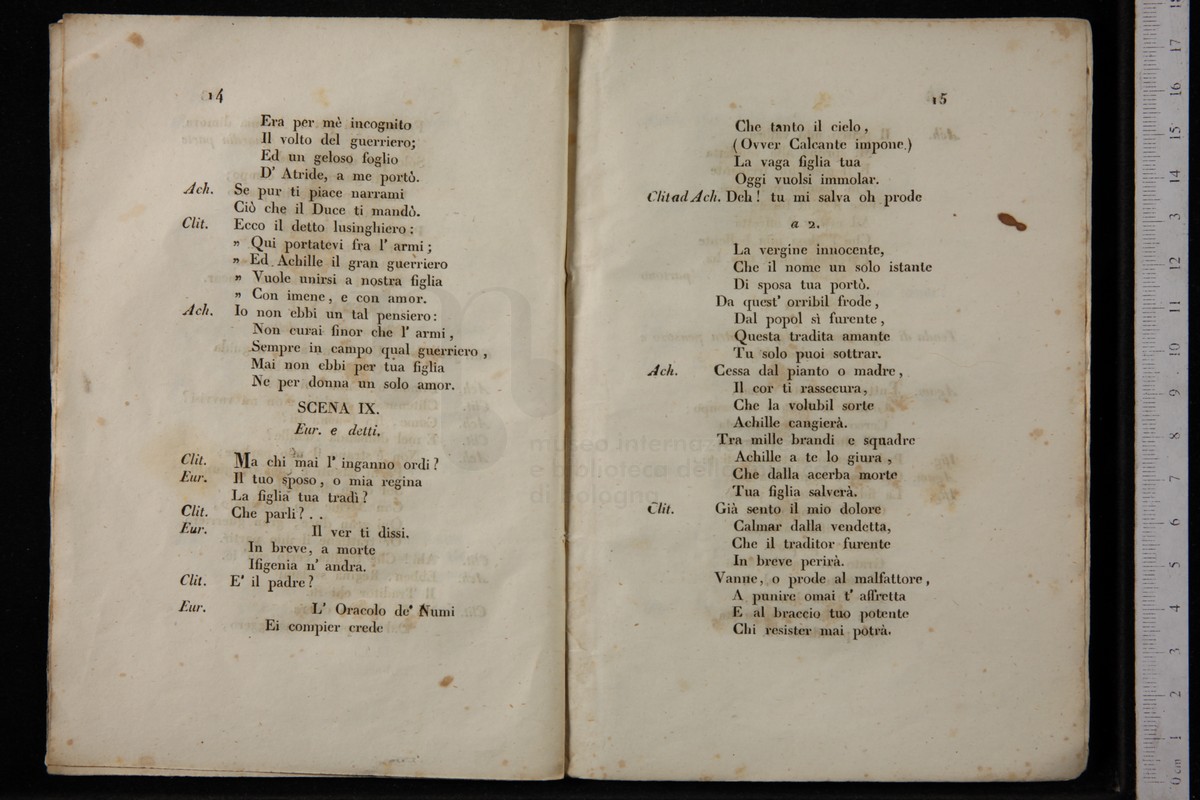 14
Era per mè incognito
Il volto del guerriero;
Ed un geloso foglio
D' Atride, a me portò.
Ach. Se pur ti piace narrami
Ciò che il Duce ti mandò.
Clit. Ecco il detto lusinghiero :
" Qui portatevi fra l' armi ;
" Ed Achille il gran guerriero
" Vuole unirsi a nostra figlia
" Con imene, e con amor.
Ach. Io non ebbi un tal pensiero:
Non curai finor che l' armi,
Sempre in campo qual guerriero ,
Mai non ebbi per tua figlia
Ne per donna un solo amor.
SCENA IX.
Eur. e detti.
Clit. Ma chi mai l' inganno ordì ?
Eur. Il tuo sposo, o mia regina
La figlia tua tradì ?
Clit. Che parli ? . .
Eur. Il ver ti dissi.
In breve, a morte
Ifigenia n' andra.
Clit. E' il padre ?
Eur. L' Oracolo de' Numi
Ei compier crede
15
Che tanto il cielo,
( Ovver Calcante impone.)
La vaga figlia tua
Oggi vuolsi immolar.
Clit ad Ach. Deh ! tu mi salva oh prode
a 2.
La vergine innocente,
Che il nome un solo istante
Di sposa tua portò.
Da quest' orribil frode,
Dal popol sì furente,
Questa tradita amante
Tu solo puoi sottrar.
Ach. Cessa dal pianto o madre,
Il cor ti rassecura,
Che la volubil sorte
Achille cangierà.
Tra mille brandi e squadre
Achille a te lo giura ,
Che dalla acerba morte
Tua figlia salverà.
Clit. Già sento il mio dolore
Calmar dalla vendetta,
Che il traditor furente
In breve perirà.
Vanne, o prode al malfattore,
A punire omai t' affretta
E al braccio tuo potente
Chi resister mai potrà.
museo internaz
e biblioteca della
di bologna
0 cm 1 2 3 4 5 6 7 8 9 10 11 12 13 14 15 16 17